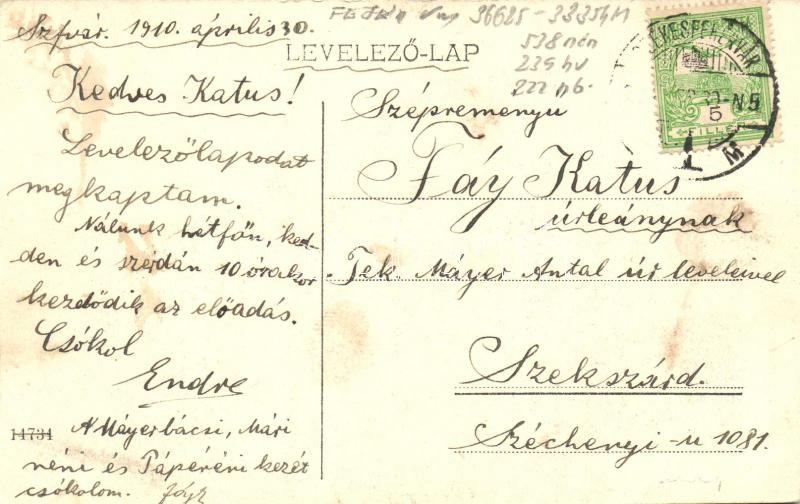 Szfvár. 1910. április 30.
36625-33354M
538 nén
239 hv
222 nb.
LEVELEZŐ-LAP
Kedves Katus!
Levelezőlapodat
megkaptam.
Nálunk hétfőn, ked-
den és szerdán 10 órakor
kezdődik az előadás.
Csókol
Endre
A Máyerbácsi, Mári
néni és Pápéréni kezét
csókolom.
14731
Szépremenyu
Fáy Katus
úrleánynak
Tek. Máyer Antal úr leveleivel
Szekszárd.
Széchenyi-u 1081.
5
FILLÉR